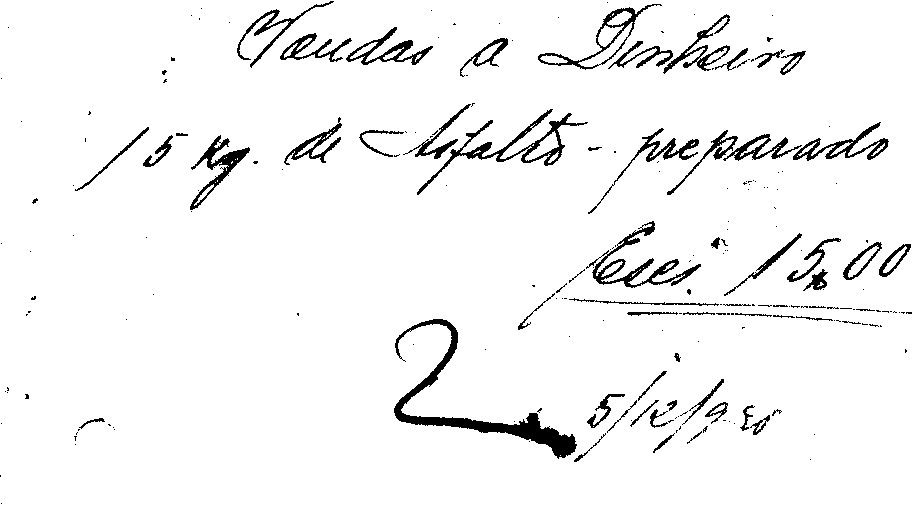 Vendas a Dinheiro
15 Kg. de Asfalto - preparado
Escs. 15$00
2
5/12/936